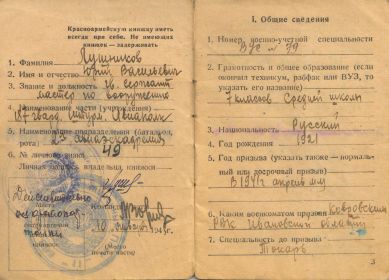 Красноармейскую книжку иметь
всегда при себе. Не имеющих
книжек — задерживать
1. Фамилия Лушников
2. Имя и отчество Юрий Васильевич
3. Звание и должность Гв. сержант
мастер по вооружению
4. Наименование части (учреждения)
187 гвард. штурм. Авиаполк
5. Наименование подразделения (батальон,
рота) 2я авиаэскадрилия
6. № личного знака 49
Личная подпись владельца книжки
I. Общие сведения
1. Номер военно-учетной специальности
ВУС № 79
2. Грамотность и общее образование (если
окончил техникум, рабфак или ВУЗ, то
указать его название)
7 классов Средней школы
3. Национальность Русский
4. Год рождения 1921
5. Год призыва (указать также — нормаль-
ный или досрочный призыв)
В 1941г апрель м-ц
6. Каким военкоматом призван Ковровским
РВК Ивановской области
7. Специальность до призыва
Токарь
3